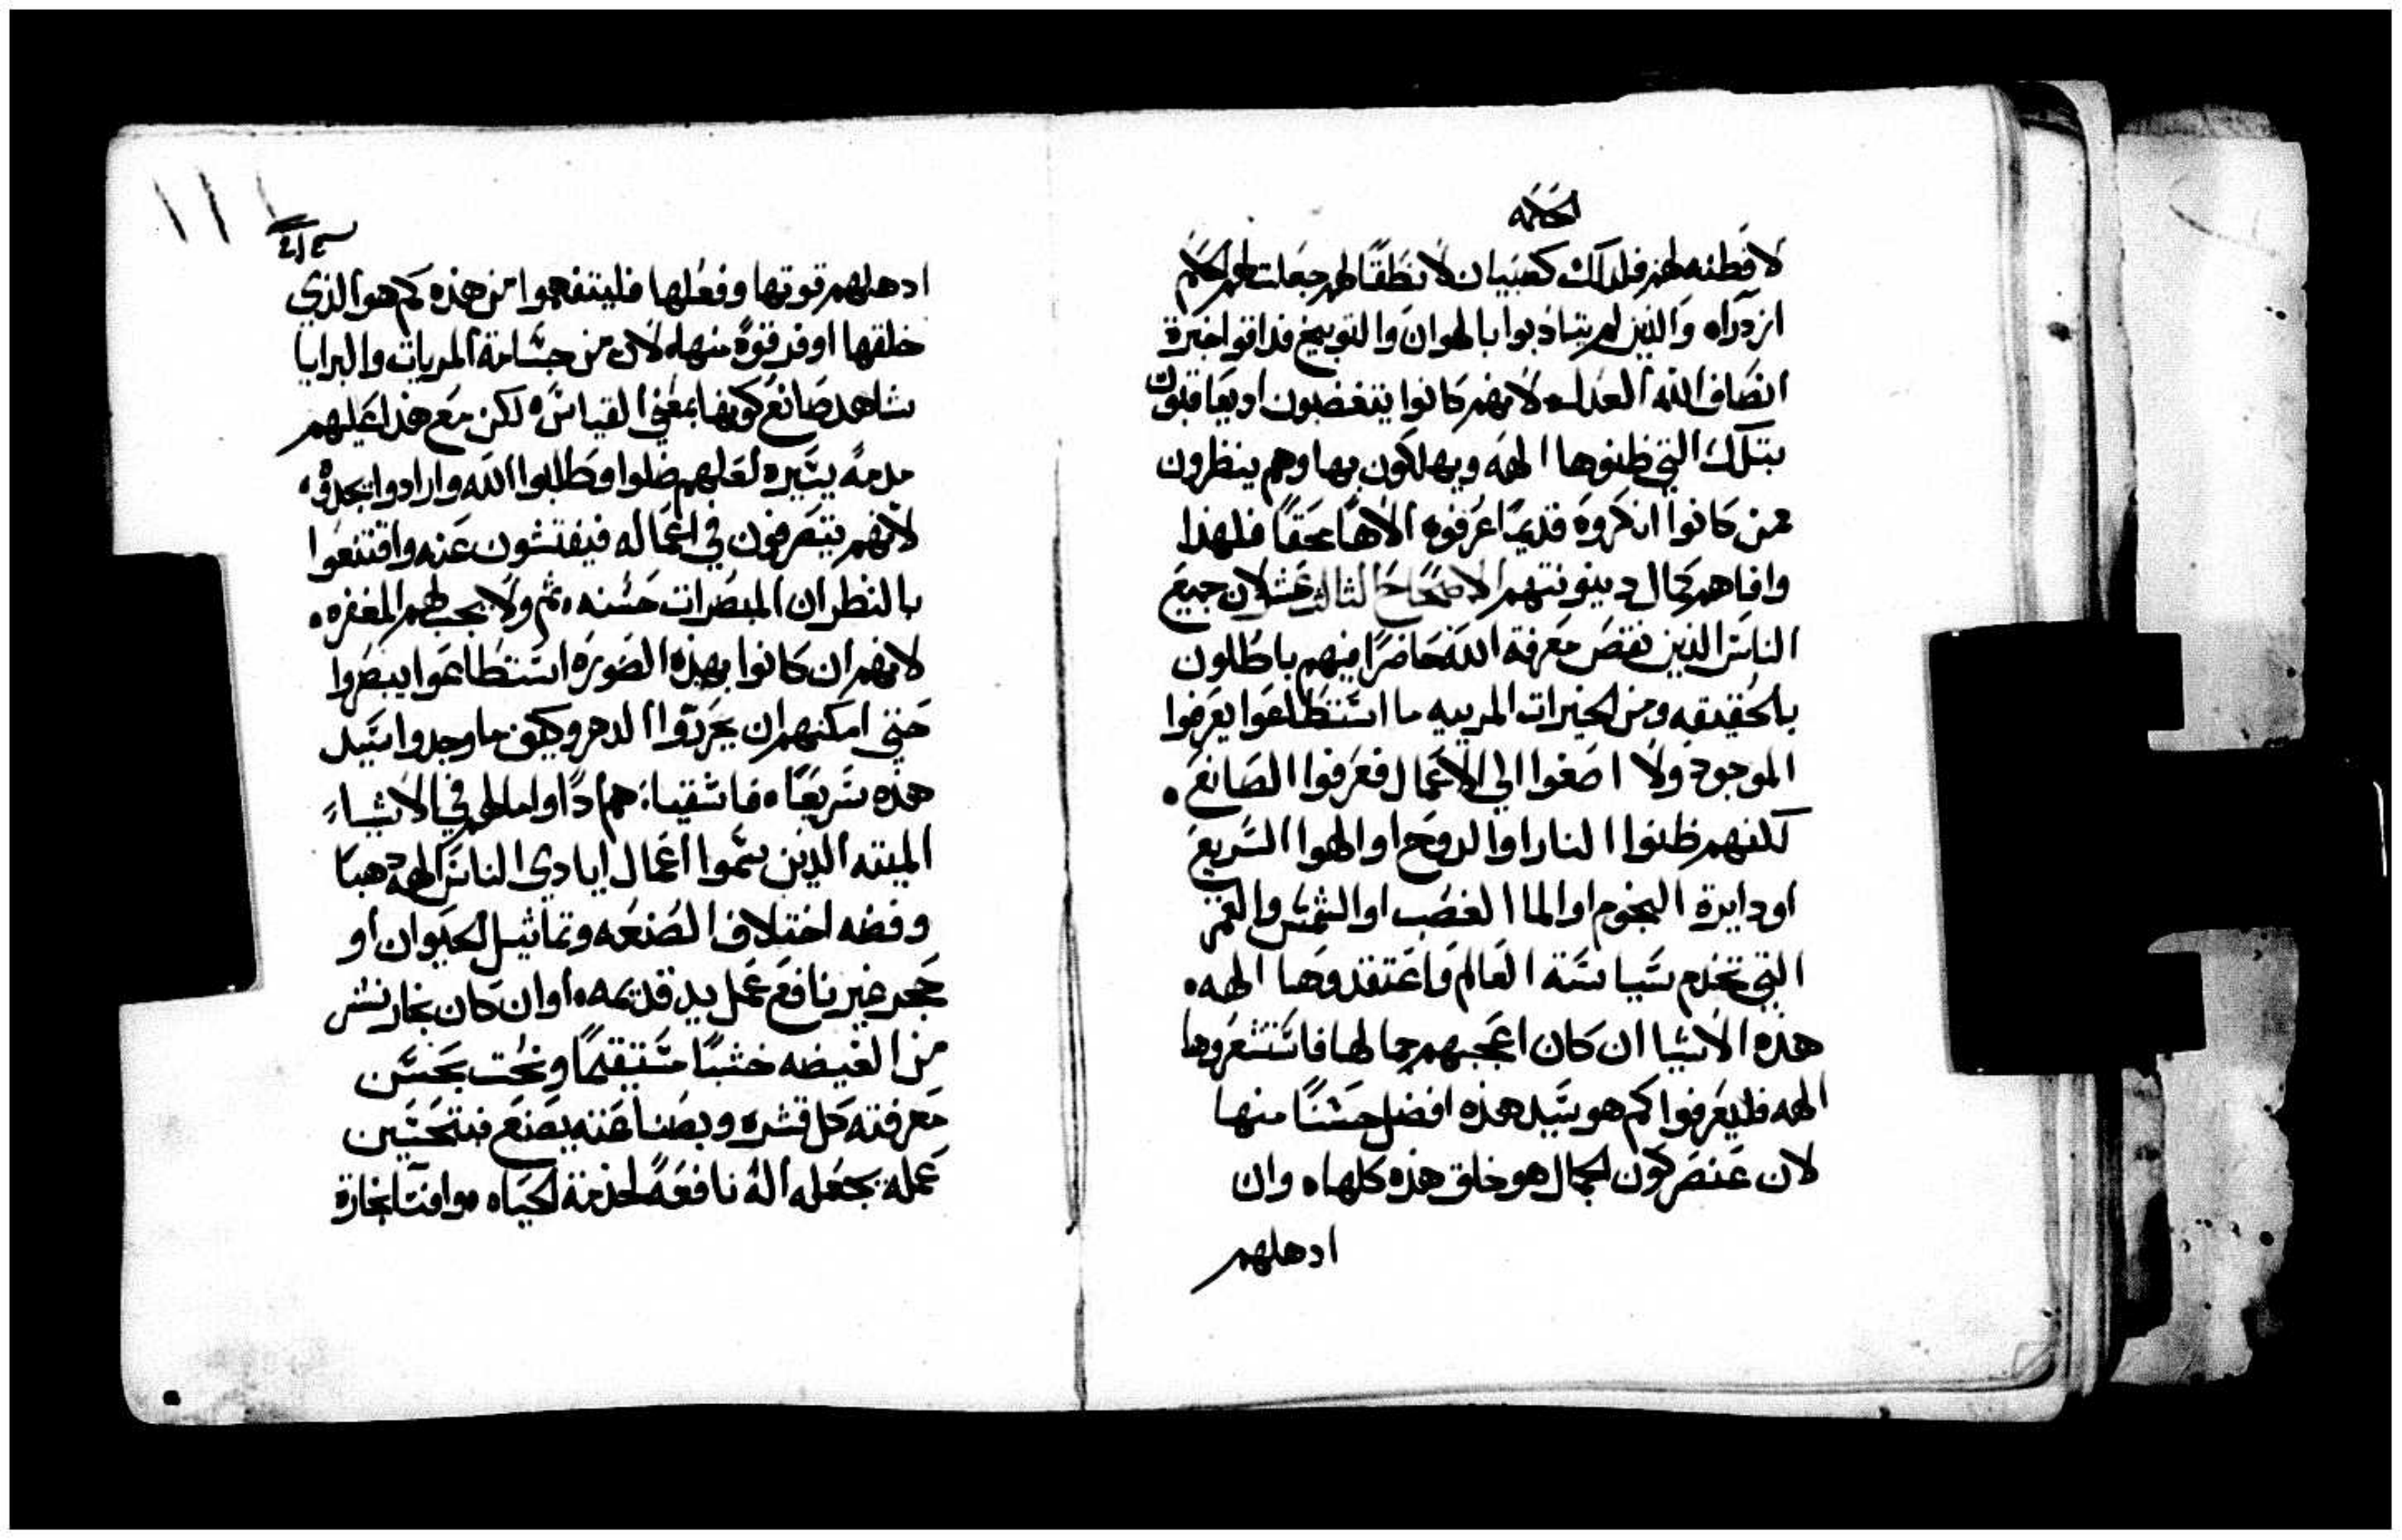 الحكمه
لا فطنه لهم فلذلك كصبيان لا نطقًا لهم جعلت لهم الحكم
ازدراه والذين لم يتادبوا بالهوان والتوبيخ فداقوا خبرة
انصاف الله العدل لانهم كانوا يتغضبون او يعاقبون
بتلك التي ظنوها الهه ويهلكون بها وهم ينظرون
ممن كانوا انكروه قديمًا اعرفوه الاهًا محقًا فلهذا
وافاهم كمال دينونتهم الاصحاح الثالث عشر لان جميع
الناس الذين نقص معرفة الله حاضرًا فيهم باطلون
بالحقيقه ومن الخيرات المرييه ما استطاعوا يعرفوا
الموجود ولا اصغوا الي الاعمال فعرفوا الصانع .
لكنهم ظنوا النار او الروح او الهوا السريع
او دايرة النجوم او الما الغصب او الشمس والقمر
التي تخدم سياسة العالم واعتقدوها الهه .
هذه الاشيا ان كان اعجبهم جمالها فاستشعروها
الهه فليعرفوا كم هو سيد هذه افضل حسنًا منها
لان عنصر كون الجمال هو خلق هذه كلها ٥ وان
ادهلهم
١١١
ادهلهم قوتها وفعلها فليتفهموا من هذه كم هو الذي
خلقها اوفر قوةً منها ٥ لان من جسامة المريات والبرايا
يشاهد صانع كونها بمعني القياس ٥ لكن مع هذا عليهم
مدمةً يسيره لعلهم ضلوا وطلبوا الله وارادوا يجدوه
لانهم يتصرفون في اعماله فيفتشون عنه واقتنعوا
بالنظر ان المبصرات حسنه ٠ ثم ولا يجب لهم المغفره .
لانهم ان كانوا بهذه الصوره استطاعوا يبصروا
حتي امكنهم ان يحرروا الدهر وكيف ما وجدوا سيد
هذه سريعًا ٥ فاشقياء هم اذًا وامالهم في الاشياء
الميته الذين سموا اعمال ايادي الناس الهه دهبًا
وفضه اختلاف الصنعه وتماثيل الحيوان او
حجر غير نافع عمل يد قديمه ٥ او ان كان نجار نشر
من الغيضه خشبًا مستقيمًا ونحت بحسن
معرفته كل قشره وبصناعته يصنع فبتحسين
عمله يجعله الةً نافعةً لخدمة الحياه ٠ وافتا نجارة